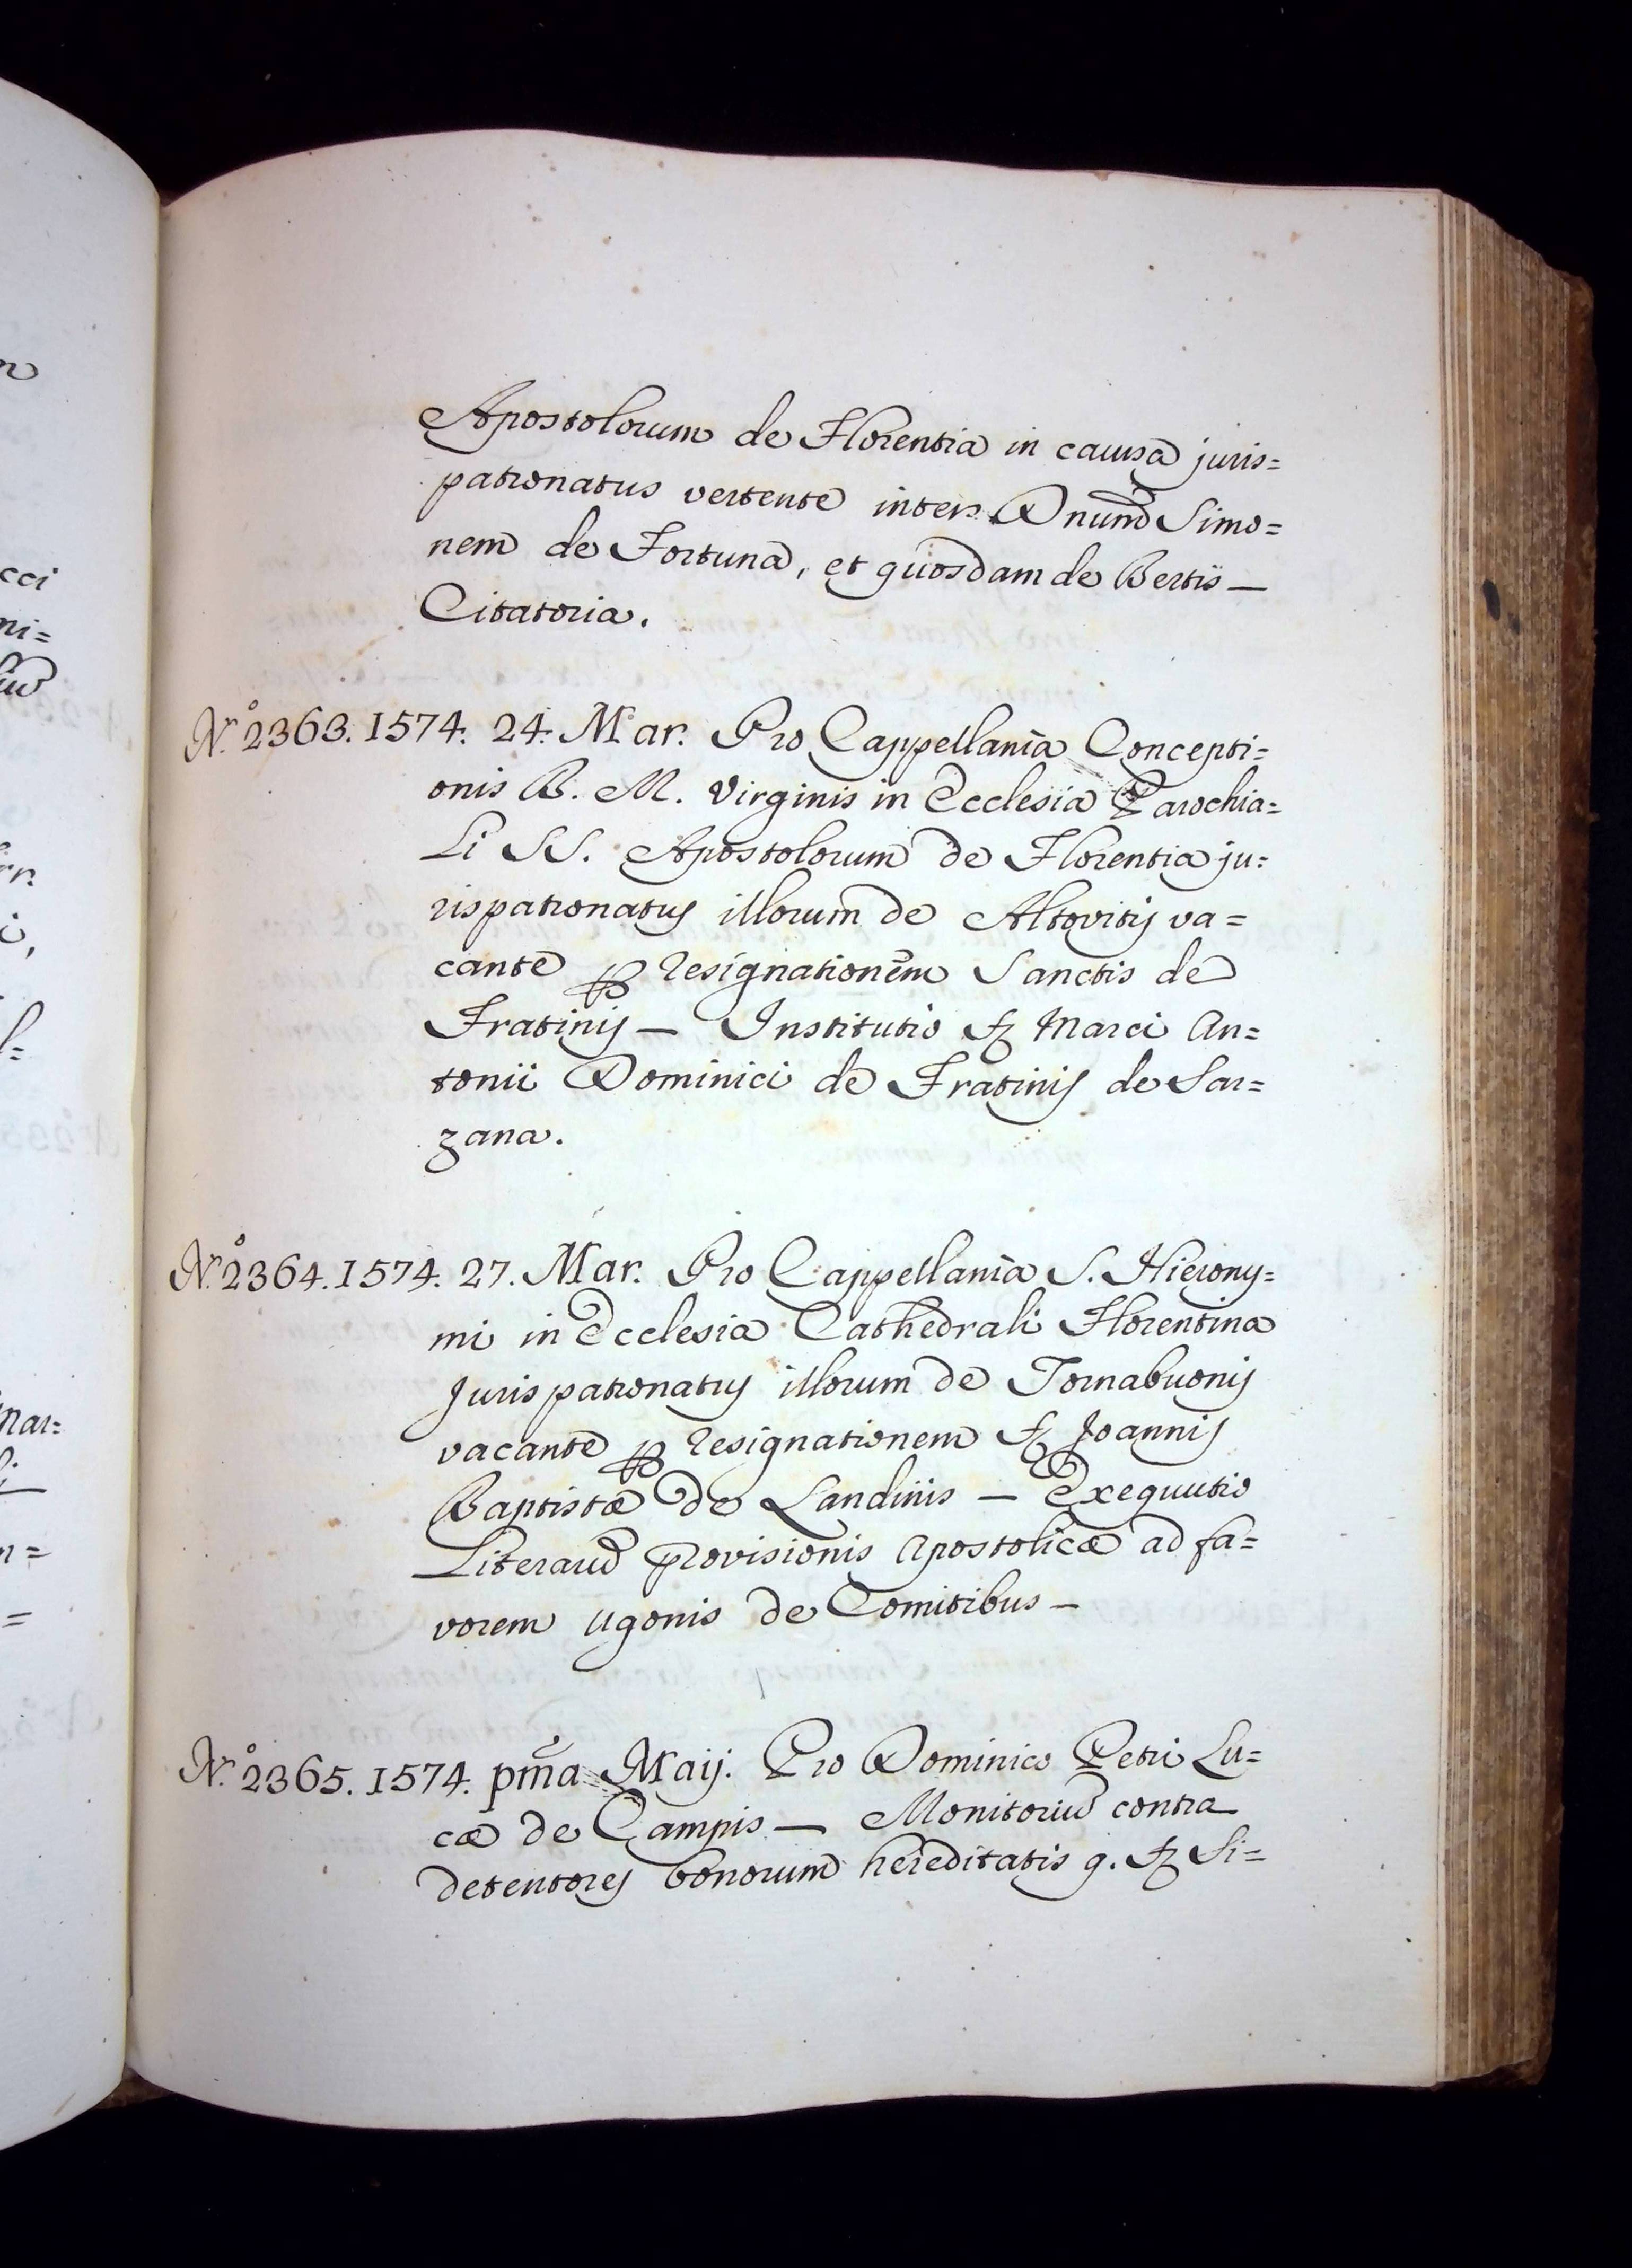 Apostolorum de Florentia in causa juris=
patronatus vertente inter Dnum Simo=
nem de Fortuna, et quosdam de Bertis —
Citatoria.
N.º 2363. 1574. 24. Mar. Pro Cappellania Concepti=
onis B. M. Virginis in Ecclesia Parochia=
li SS. Apostolorum de Florentia ju=
rispatronatus illorum de Altovitis va=
cante per resignationem Sanctis de
Fratinis — Institutio Marci An=
tonii Dominici de Fratinis de Sar=
zana.
N.º 2364. 1574. 27. Mar. Pro Cappellania S. Hierony=
mi in Ecclesia Cathedrali Florentina
Jurispatronatus illorum de Tornabuonis
vacante per resignationem Joannis
Baptistæ de Landinis — Exequutio
Literarū provisionis Apostolicæ ad fa=
vorem Ugonis de Comitibus —
N.º 2365. 1574. pma Maij. Pro Dominico Petri Lu=
cæ de Campis — Monitoriū contra
detentores bonorum hereditatis q. Si=
cci
ni=
nar=
n=
=